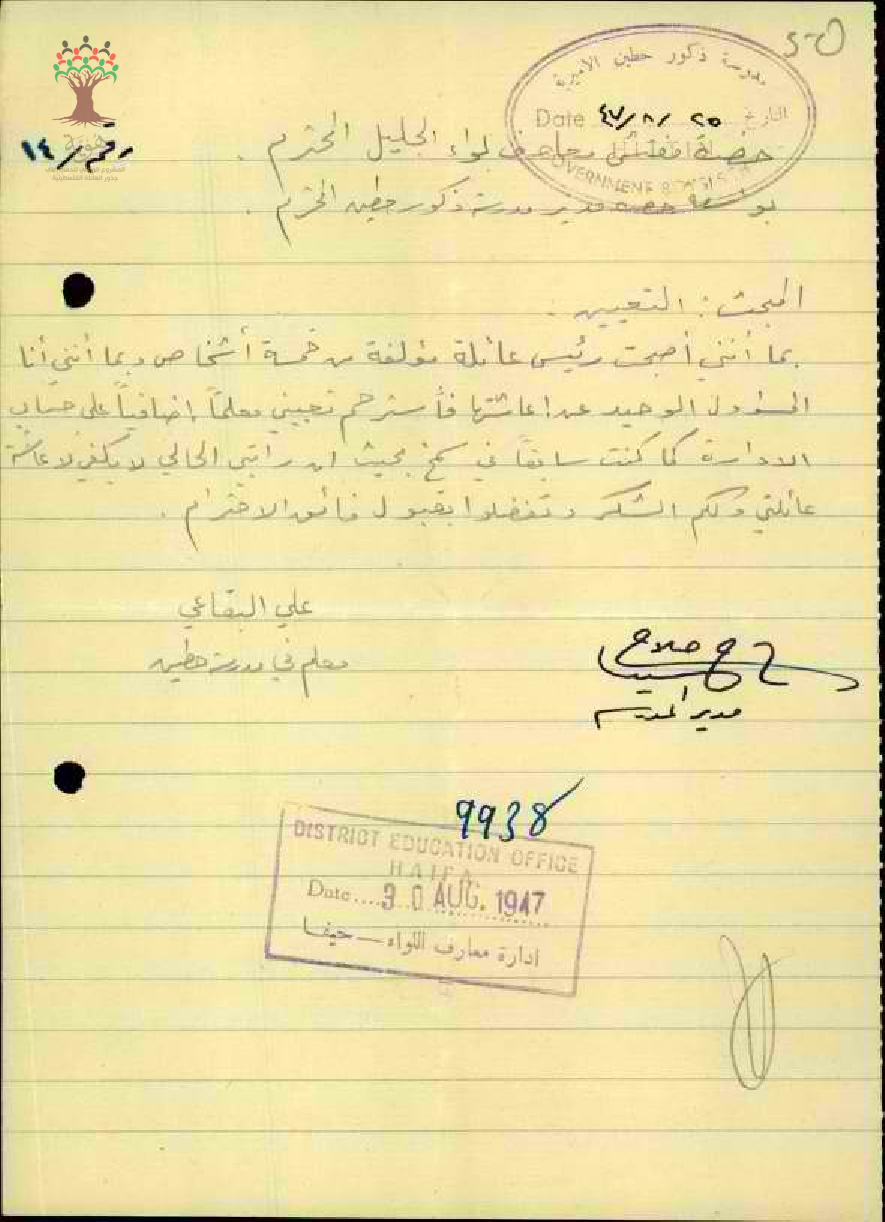 مدرسة ذكور حطين الاميرية
Date ٤٧/٨/٢٥ التاريخ
GOVERNMENT
رقم / ١٤
حضرة مفتش معارف لواء الجليل المحترم .
بواسطة حضرة مدير مدرسة ذكور حطين المحترم .
المبحث : التعيين .
بما أنني أصبحت رئيس عائلة مؤلفة من خمسة أشخاص وبما أنني أنا
المسؤول الوحيد عن اعاشتها فأسترحم تعييني معلماً إضافياً على حساب
الادارة كما كنت سابقاً في سمخ بحيث ان راتبي الحالي لا يكفي لاعاشة
عائلتي ولكم الشكر وتفضلوا بقبول فائق الاحترام .
علي البقاعي
معلم في مدرسة حطين
صلاح
مدير المدرسة
9938
DISTRICT EDUCATION OFFICE
HAIFA
Date.... 30 AUG. 1947
ادارة معارف اللواء — حيفا